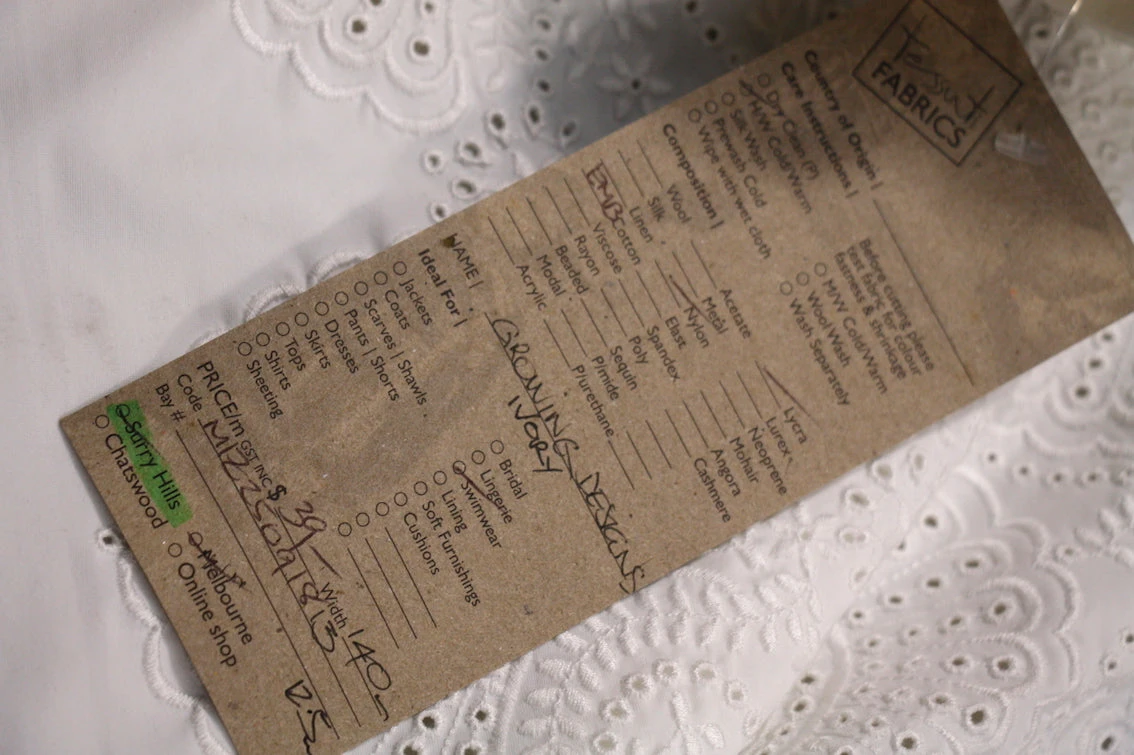 Tessuti
FABRICS
Country of Origin |
Care Instructions |
Dry Clean (P)
H/W Cold/Warm
Silk Wash
Prewash Cold
Wipe with wet cloth
Before cutting please
test fabric for colour
fastness & shrinkage
M/W Cold/Warm
Wool Wash
Wash Separately
Composition |
Wool
Silk
Linen
EMB Cotton
Viscose
Rayon
Beaded
Modal
Acrylic
Acetate
Metal
Nylon
Elast
Spandex
Poly
Sequin
P/mide
P/urethane
Lycra
Lurex
Neoprene
Mohair
Angora
Cashmere
NAME | GROWING DESIGNS
IVORY
Ideal For |
Jackets
Coats
Scarves | Shawls
Pants | Shorts
Dresses
Skirts
Tops
Shirts
Sheeting
Bridal
Lingerie
Swimwear
Lining
Soft Furnishings
Cushions
PRICE/m GST INC $ 39- Width 140
Code
Bay #
Surry Hills
Chatswood
Melbourne
Online shop